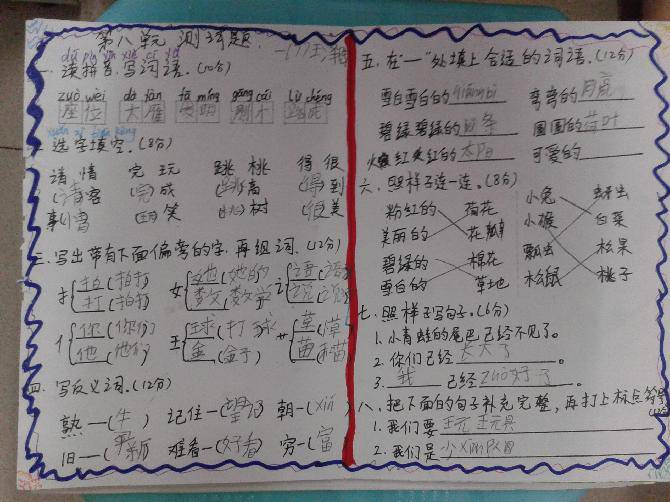 第八单元测试题.
dú pīn yīn xiě cí yǔ
一.读拼音.写词语.(10分)
zuò wèi dà yàn fā míng gāng cái lù chéng
座位 大雁 发明 刚才 路成
xuǎn zì tián kòng
选字填空.(8分)
请 情 完 玩 跳 桃 得 很
(请)客 (完)成 (跳)高 (得)到
事(情) (玩)笑 (桃)树 (很)美
三.写出带有下面偏旁的字.再组词.(12分)
扌 拍(拍打) 女 她(她的) 讠 语(语
打(拍打) 数(数学) 说(说
亻 你(你们) 王 球(打球) 艹 草(草
他(他们) 金(金子) 苗(苗
四.写反义词.(12分)
熟—(牛) 记住—(望了) 朝—(xiī)
旧—(新) 难看—(好看) 穷—(富)
五.在"—"处填上合适的词语.(12分)
雪白雪白的 弯弯的月亮
碧绿碧绿的 圆圆的荷叶
火红火红的太阳 可爱的
六.照样子连一连.(8分)
粉红的 荷花 小兔 虾虫
美丽的 花瓣 小猴 白菜
碧绿的 棉花 瓢虫 松果
雪白的 草地 松鼠 桃子
七.照样子写句子.(6分)
1.小青蛙的尾巴已经不见了.
2.你们已经长大了。
3.我已经zuò好了。
八.把下面的句子补充完整,再打上标点符号
1.我们要玩玩具
2.我们是小